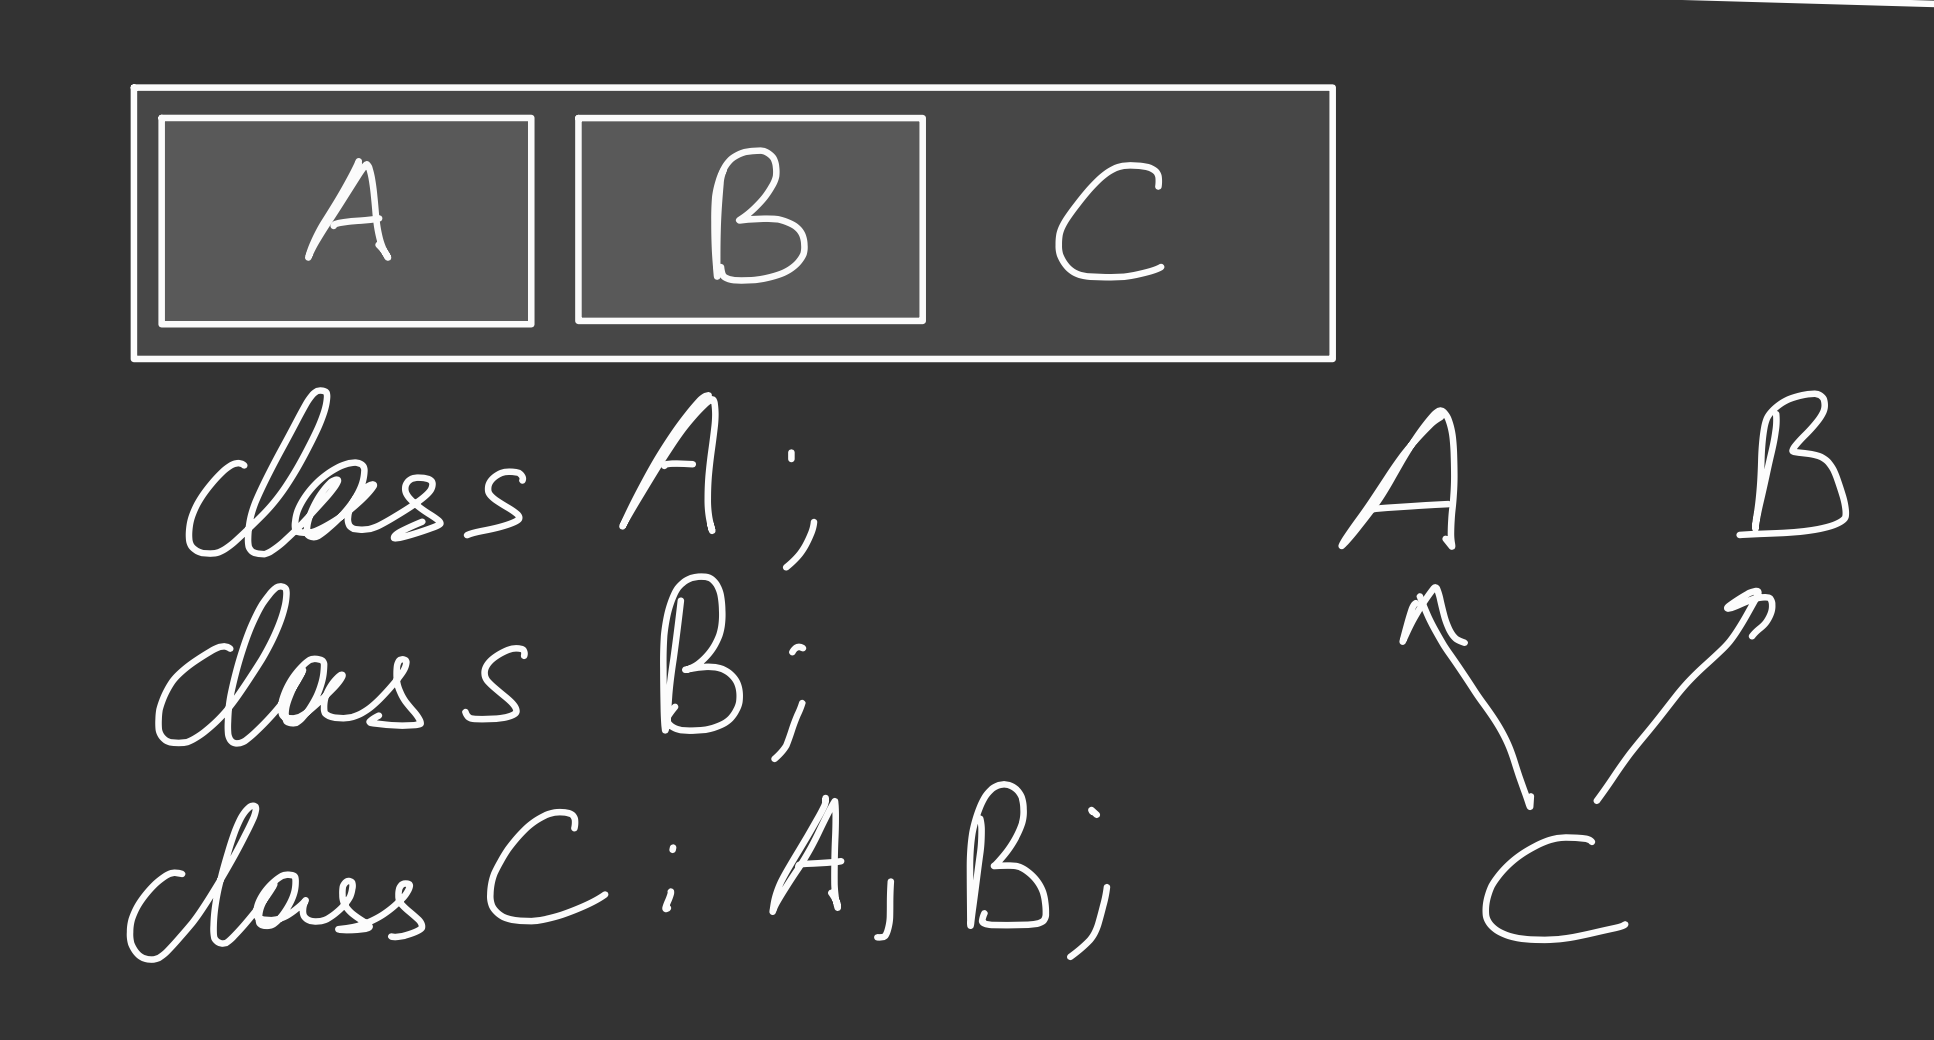 A B C
class A;
class B;
class C : A, B;
A B
C